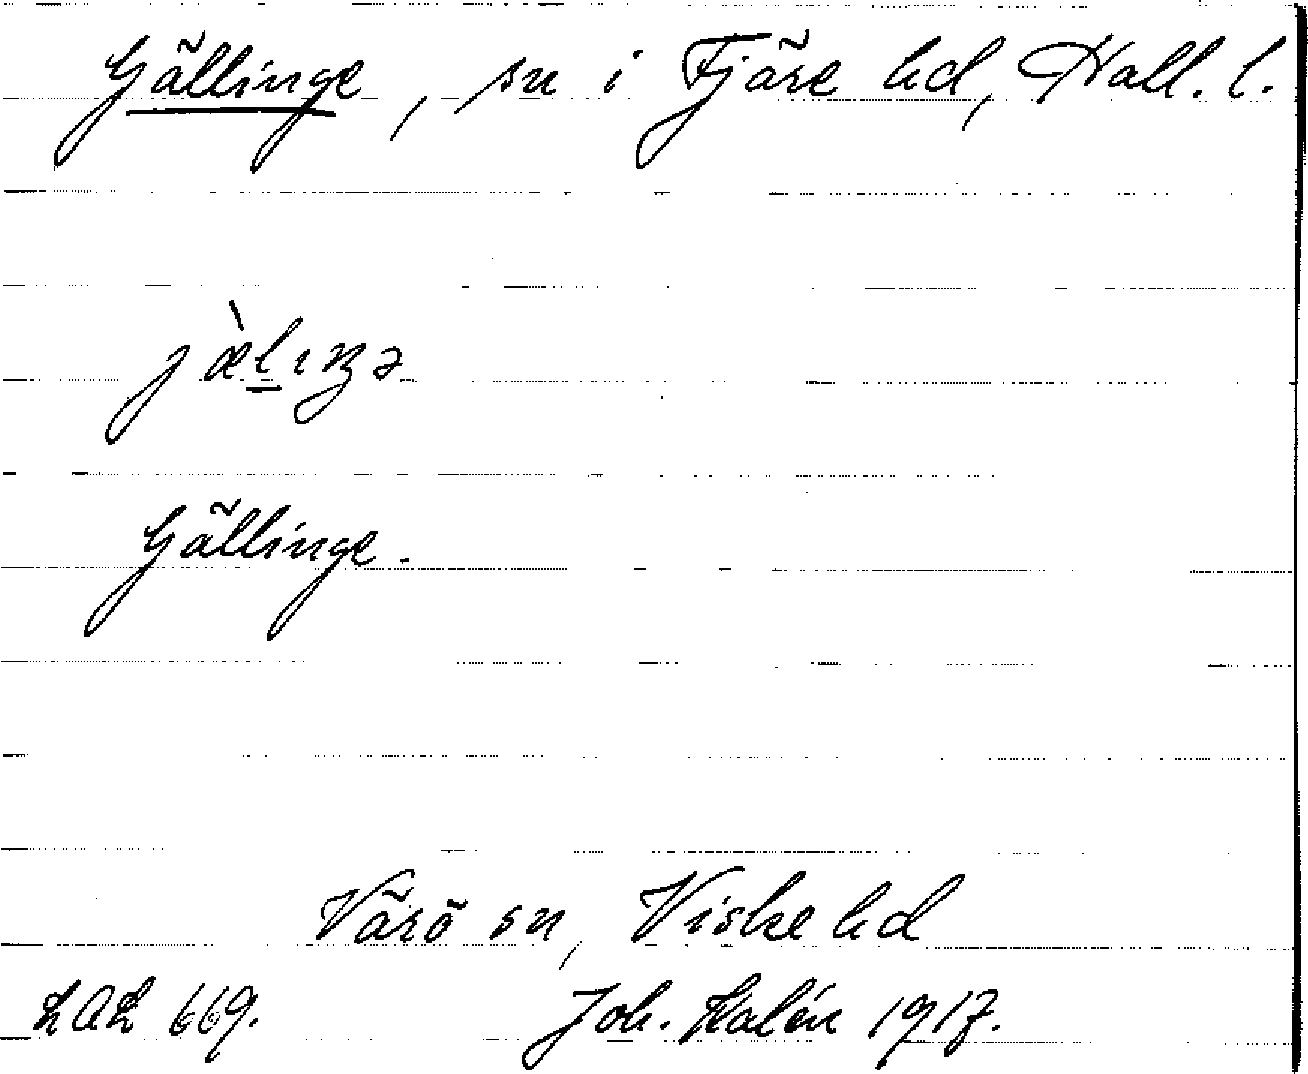 Gällinge, sn i Fjäre hd, Hall. l.
jæ̀lıŋə
Gällinge.
Värö sn, Viske hd
LAL 669. Joh. Kalén 1917.